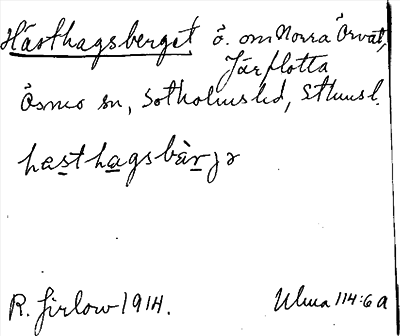 Hästhagsberget ö. om Norra Örvat,
Järflotta
Ösmo sn, Sotholms hd, Sthmsl.
hesthagsbàrjə
R. Jirlow 1914.
Ulma 114:6 a